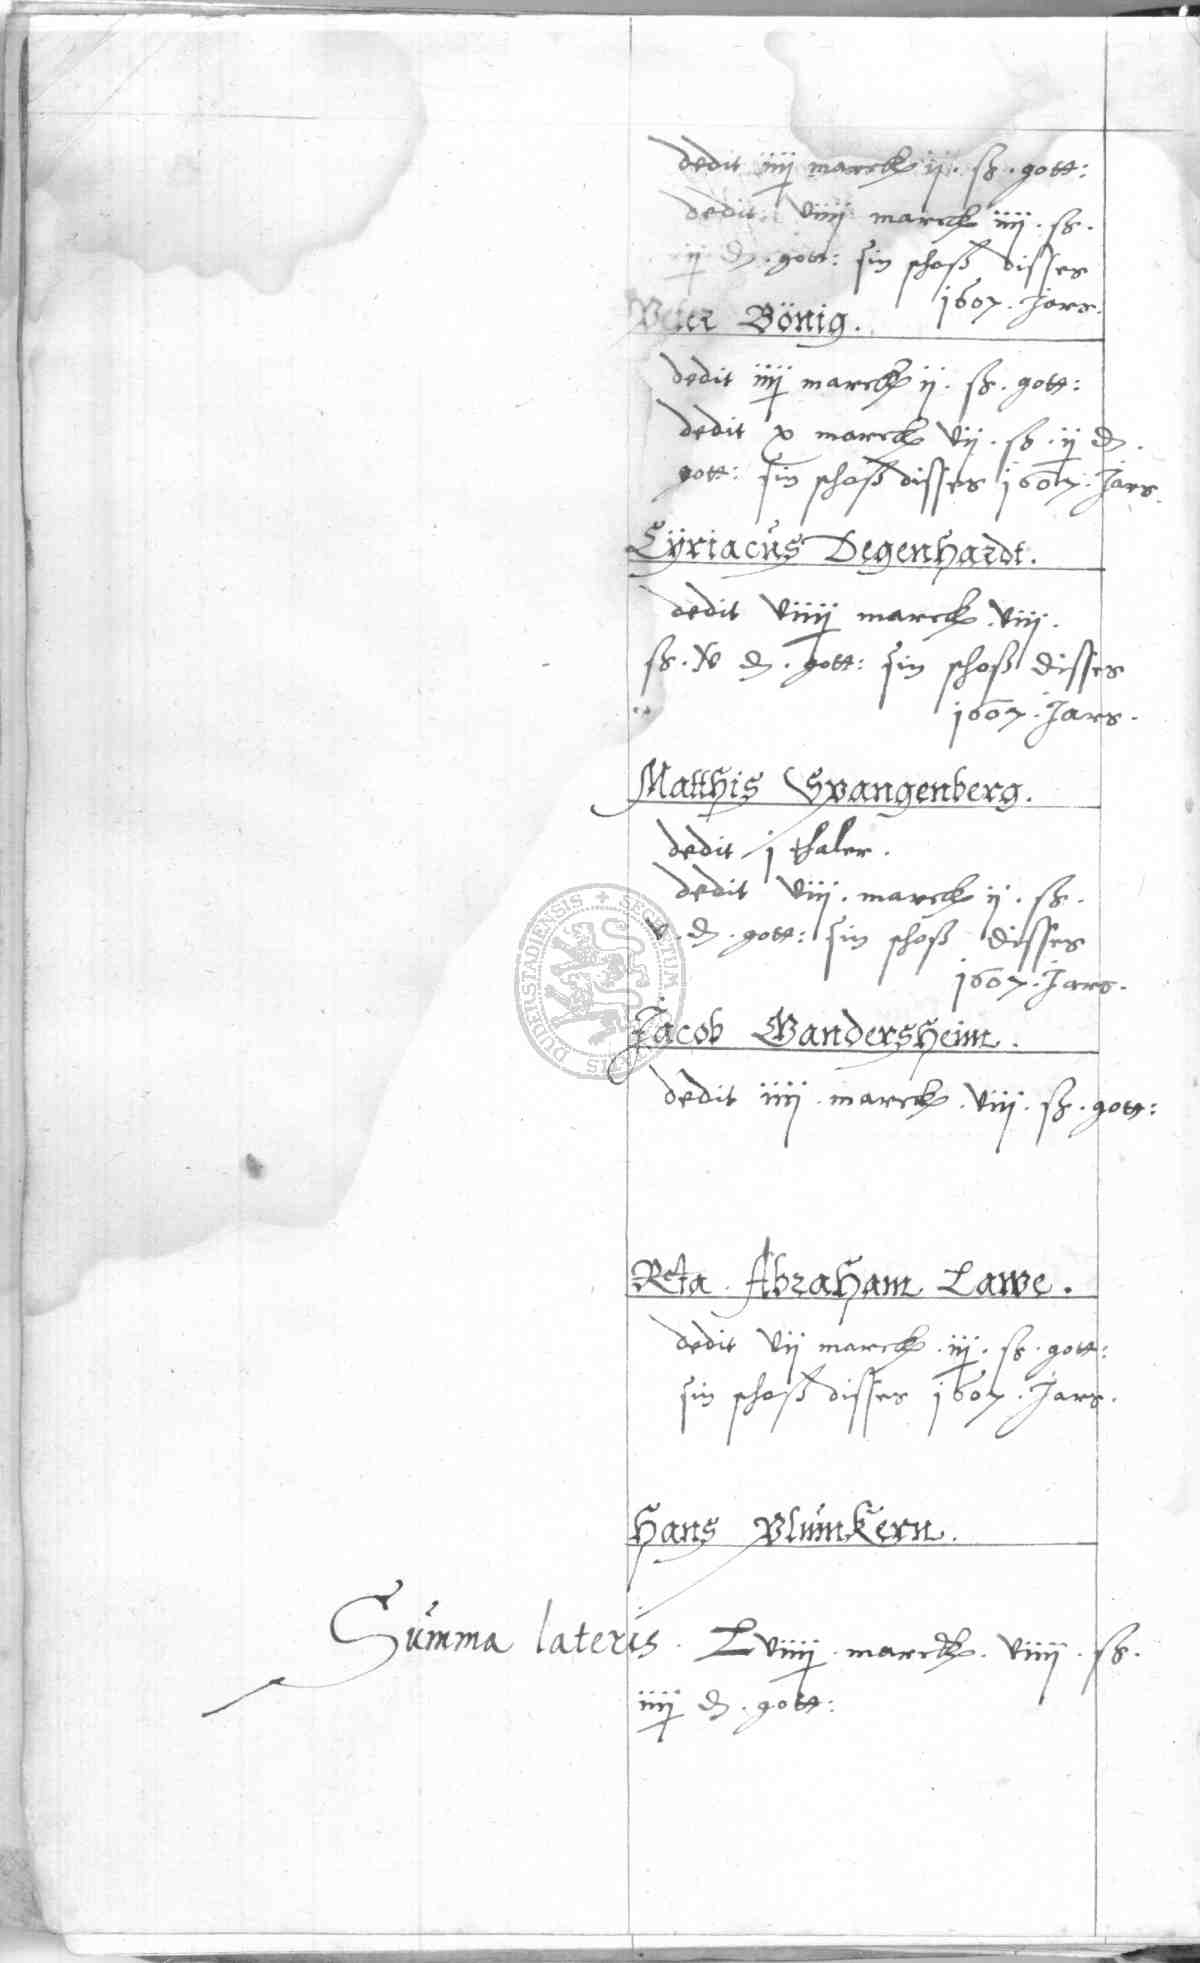 dedit iiij marck ij. ß. gott:
dedit viiij marck iiij. ß.
ij d. gott: sin schoß disses
1607. Jars.
Peter Bönig.
dedit iiij marck ij. ß. gott:
dedit x marck vij. ß. ij d.
gott: sin schoß disses 1607. Jars.
Cÿriacus Degenhardt.
dedit viiij marck. viij.
ß. iv d. gott: sin schoß disses
1607. Jars.
Matthis Spangenberg.
dedit j thaler.
dedit viij. marck ij. ß.
v. d. gott: sin schoß disses
1607. Jars.
Jacob Gandersheim.
dedit iiij. marck. viij. ß. gott:
Rcta. Abraham Lawe.
dedit vij marck. iij. ß. gott:
sin schoß disses 1607. Jars.
Hans Plümkern.
Summa lateris. Lviiij. marck. viiij. ß.
iiij d. gott:
SECRETUM DUDERSTADIENSIS